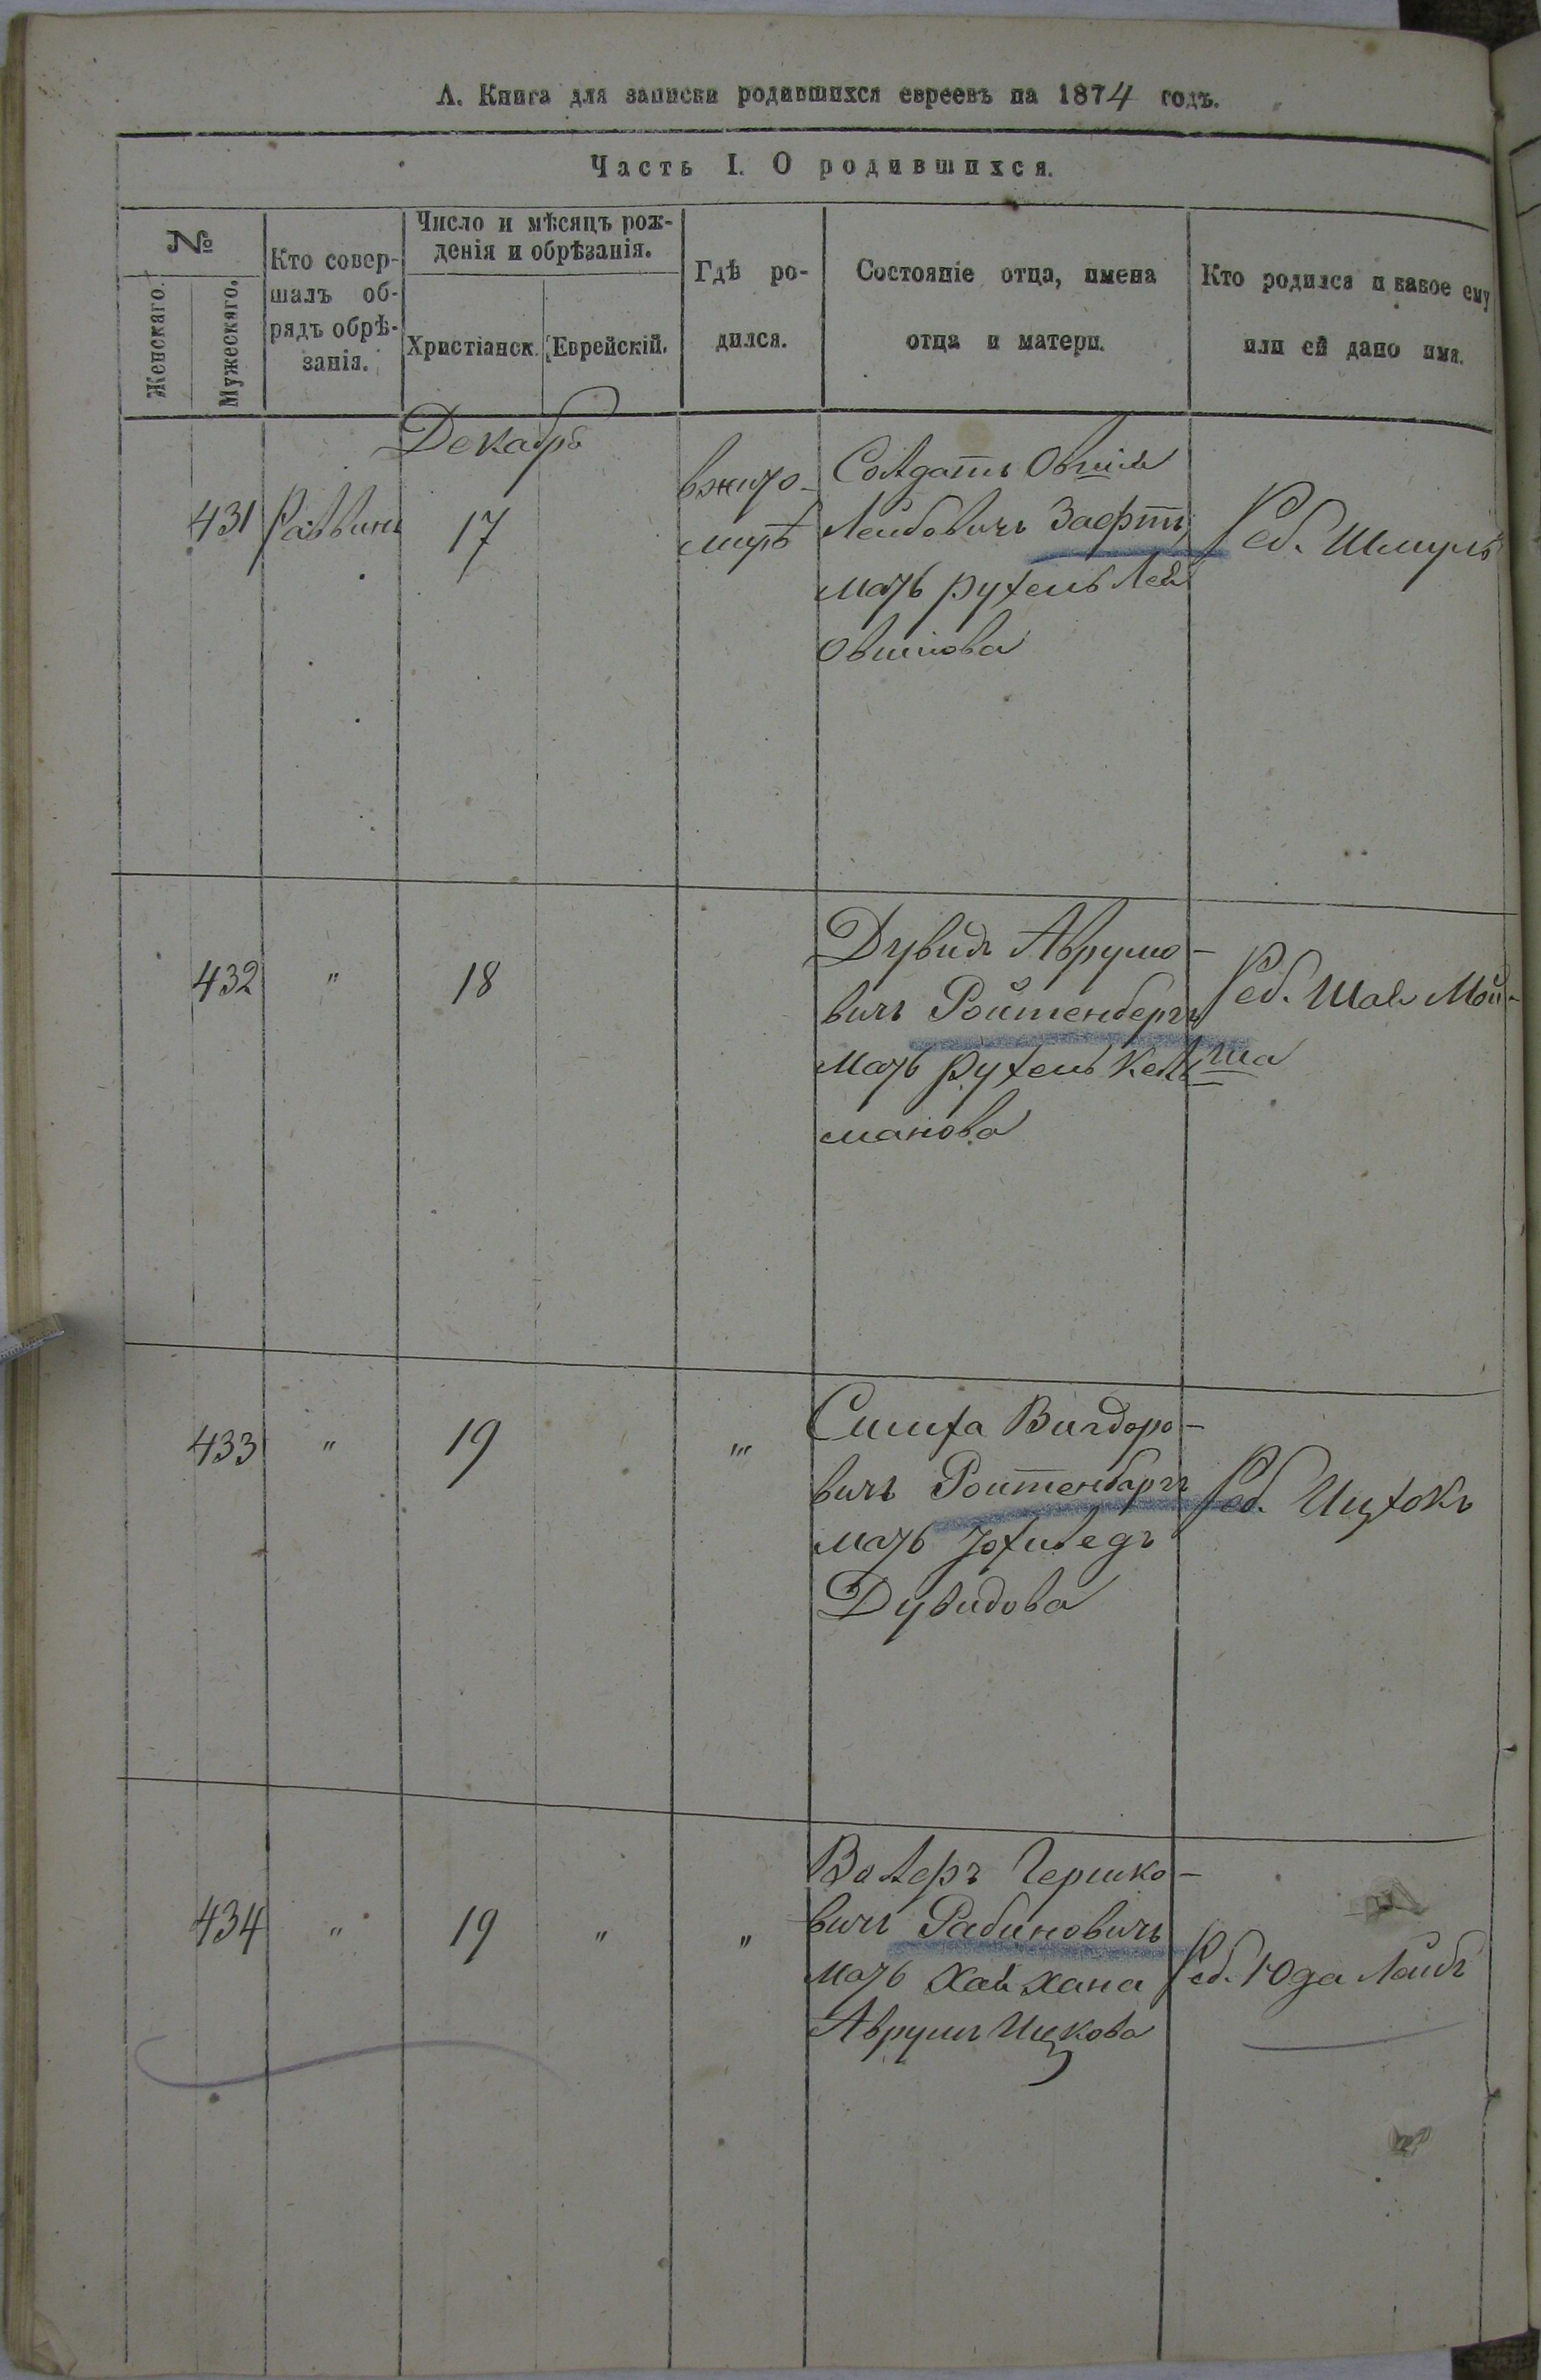 А. Книга для записки родившихся евреевъ на 1874 годъ.
Часть I. О родившихся.
№
Женскаго.
Мужескаго.
Кто совер-
шалъ об-
рядъ обрѣ-
занія.
Число и мѣсяцъ рож-
денія и обрѣзанія.
Христіанск.
Еврейскій.
Гдѣ ро-
дился.
Состояніе отца, имена
отца и матери.
Кто родился и какое ему
или ей дано имя.
Декабрь
431
Раввинъ
17
вжито-
мирѣ
Солдатъ
Лейбовичъ Зафтъ
мать рухель Лея
Овшіова
Реб. Шмуль
432
"
18
Дувидъ Аврумо-
вичъ Ройтенбергъ
мать рухель Кель
манова
Реб. Шая Мой-
ша
433
"
19
"'
Симха Вигдоро-
вичъ Ройтенбаргъ
мать Iохеведъ
Дувидова
Реб. Ицхокъ
434
"
19
"
"
Волеръ Гершко-
вичъ Рабиновичъ
мать Хая хана
Аврумъ Ицкова
Реб. Юда Лейбъ